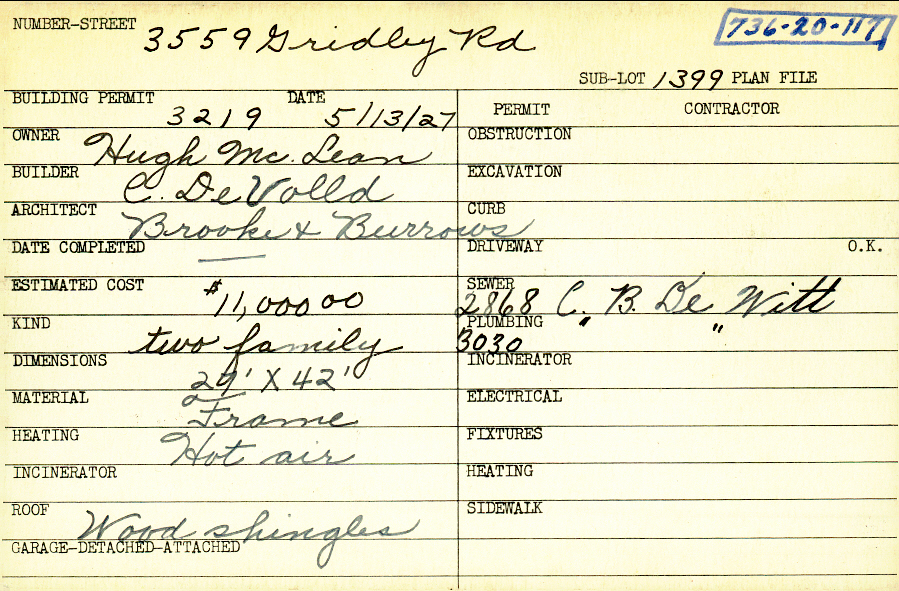 NUMBER-STREET 3559 Gridley Rd
736-20-117
SUB-LOT 1399 PLAN FILE
BUILDING PERMIT 3219 DATE 5/13/27
PERMIT CONTRACTOR
OWNER Hugh Mc. Lean
OBSTRUCTION
BUILDER C. DeVolld
EXCAVATION
ARCHITECT Brooke & Burrows
CURB
DATE COMPLETED —
DRIVEWAY O.K.
ESTIMATED COST $11,000 00
SEWER 2868 C. B. De Witt
KIND two family
PLUMBING 3030 " "
DIMENSIONS 29' X 42'
INCINERATOR
MATERIAL Frame
ELECTRICAL
HEATING Hot air
FIXTURES
INCINERATOR
HEATING
ROOF Wood shingles
SIDEWALK
GARAGE-DETACHED-ATTACHED